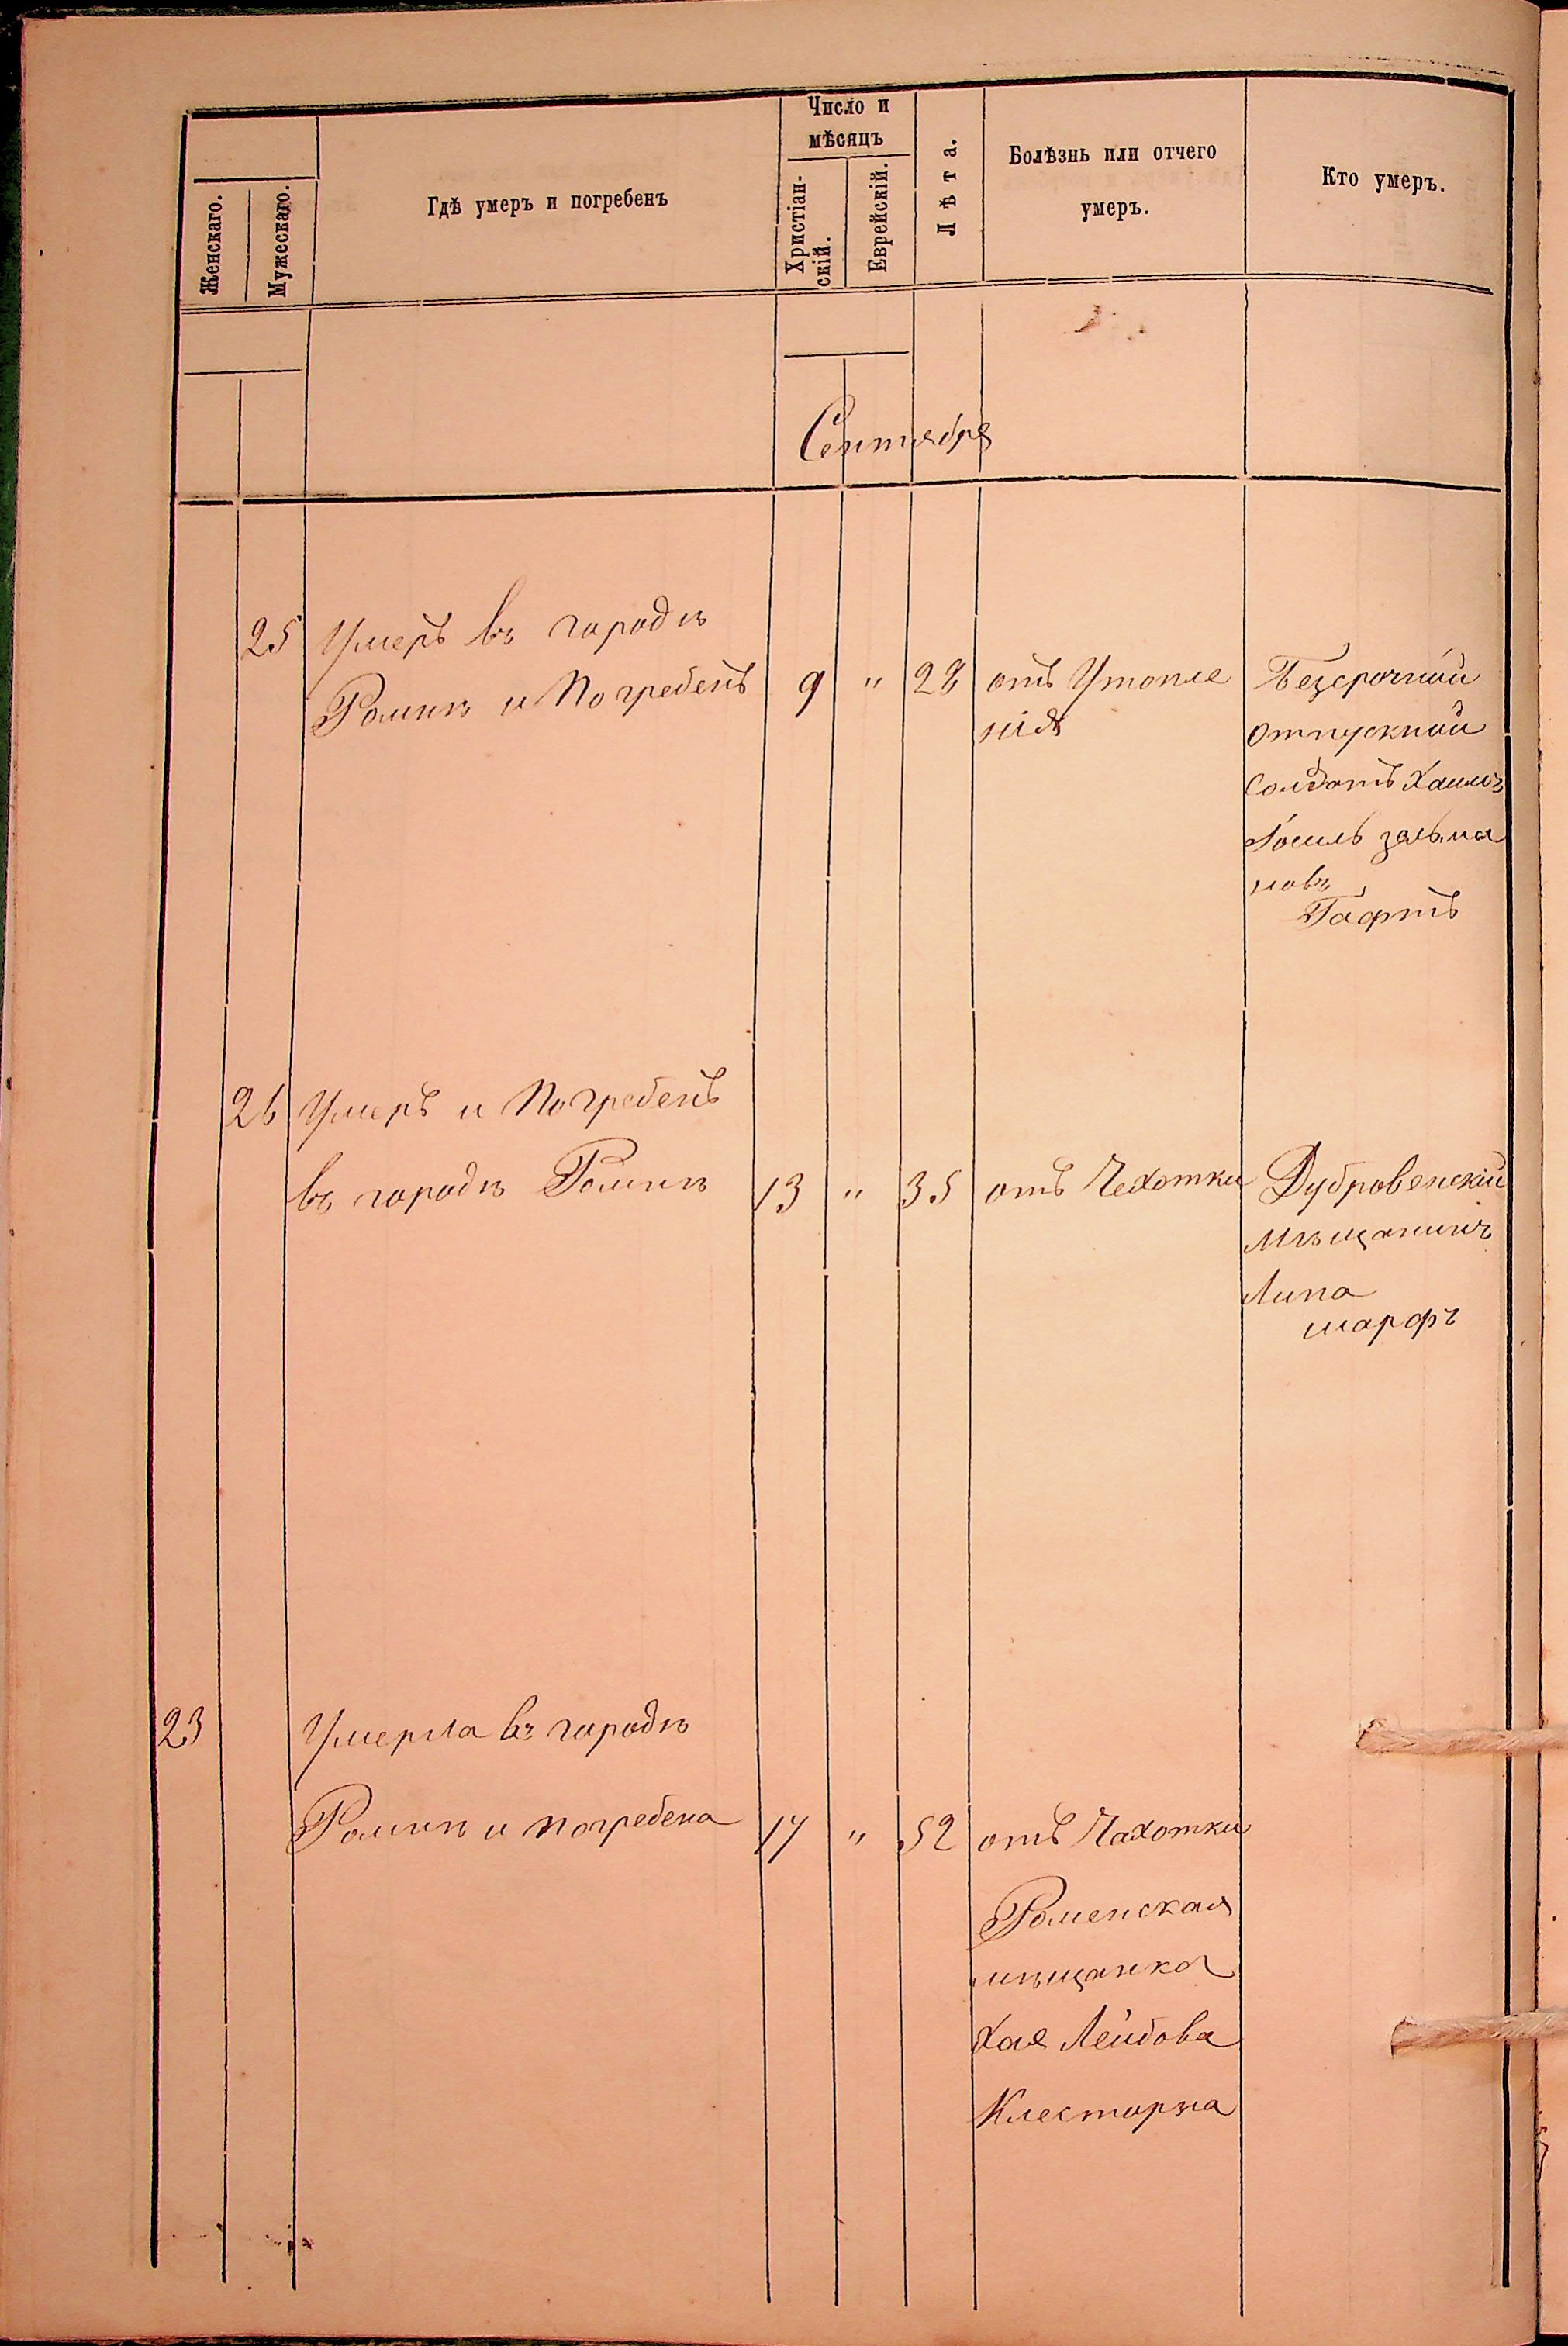 Женскаго.
Мужескаго.
Гдѣ умеръ и погребенъ
Число и
мѣсяцъ
Христіан-
скій.
Еврейскій.
Лѣта.
Болѣзнь или отчего
умеръ.
Кто умеръ.
Сентября
25 Умеръ въ городѣ
Ромнѣ и Погребенъ 9 " 28 отъ Утопле
нія
Безсрочный
отпускной
Солдатъ Хаимъ
зальма
новъ
Гафтъ
26 Умеръ и Погребенъ
въ городѣ Ромнѣ 13 " 35 отъ Чехотки
Дубровенскій
мѣщанинъ
Липа
шарфъ
23 Умерла въ городѣ
Ромнѣ и погребена 17 " 52 отъ Чахотки
Роменская
мѣщанка
Хая Лейбова